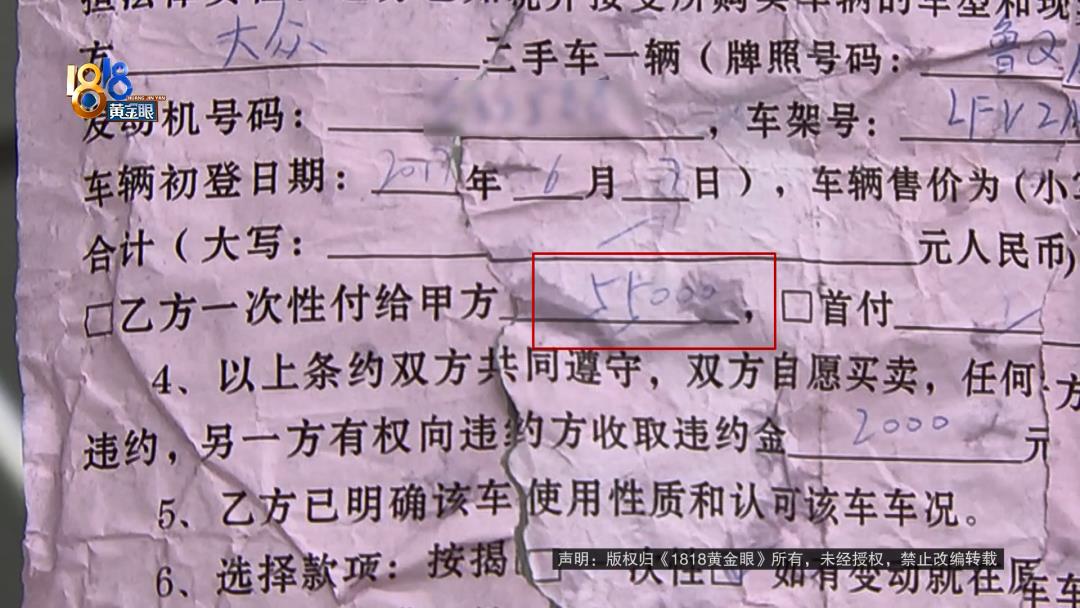 担法律责任。
所购买车辆的车型和现
方 大众 二手车一辆（牌照号码：鲁
1818
HUANG JIN YAN
黄金眼
发动机号码： ，车架号：LFV2
车辆初登日期：2017年 6 月 日），车辆售价为（小
合计（大写： 元人民币）
□乙方一次性付给甲方 55000 ，□首付
4、以上条约双方共同遵守，双方自愿买卖，任何一方
违约，另一方有权向违约方收取违约金 2000 元
5、乙方已明确该车使用性质和认可该车车况。
声明：版权归《1818黄金眼》所有，未经授权，禁止改编转载
6、选择款项：按揭□ 一次性□ 如有变动就在原车车